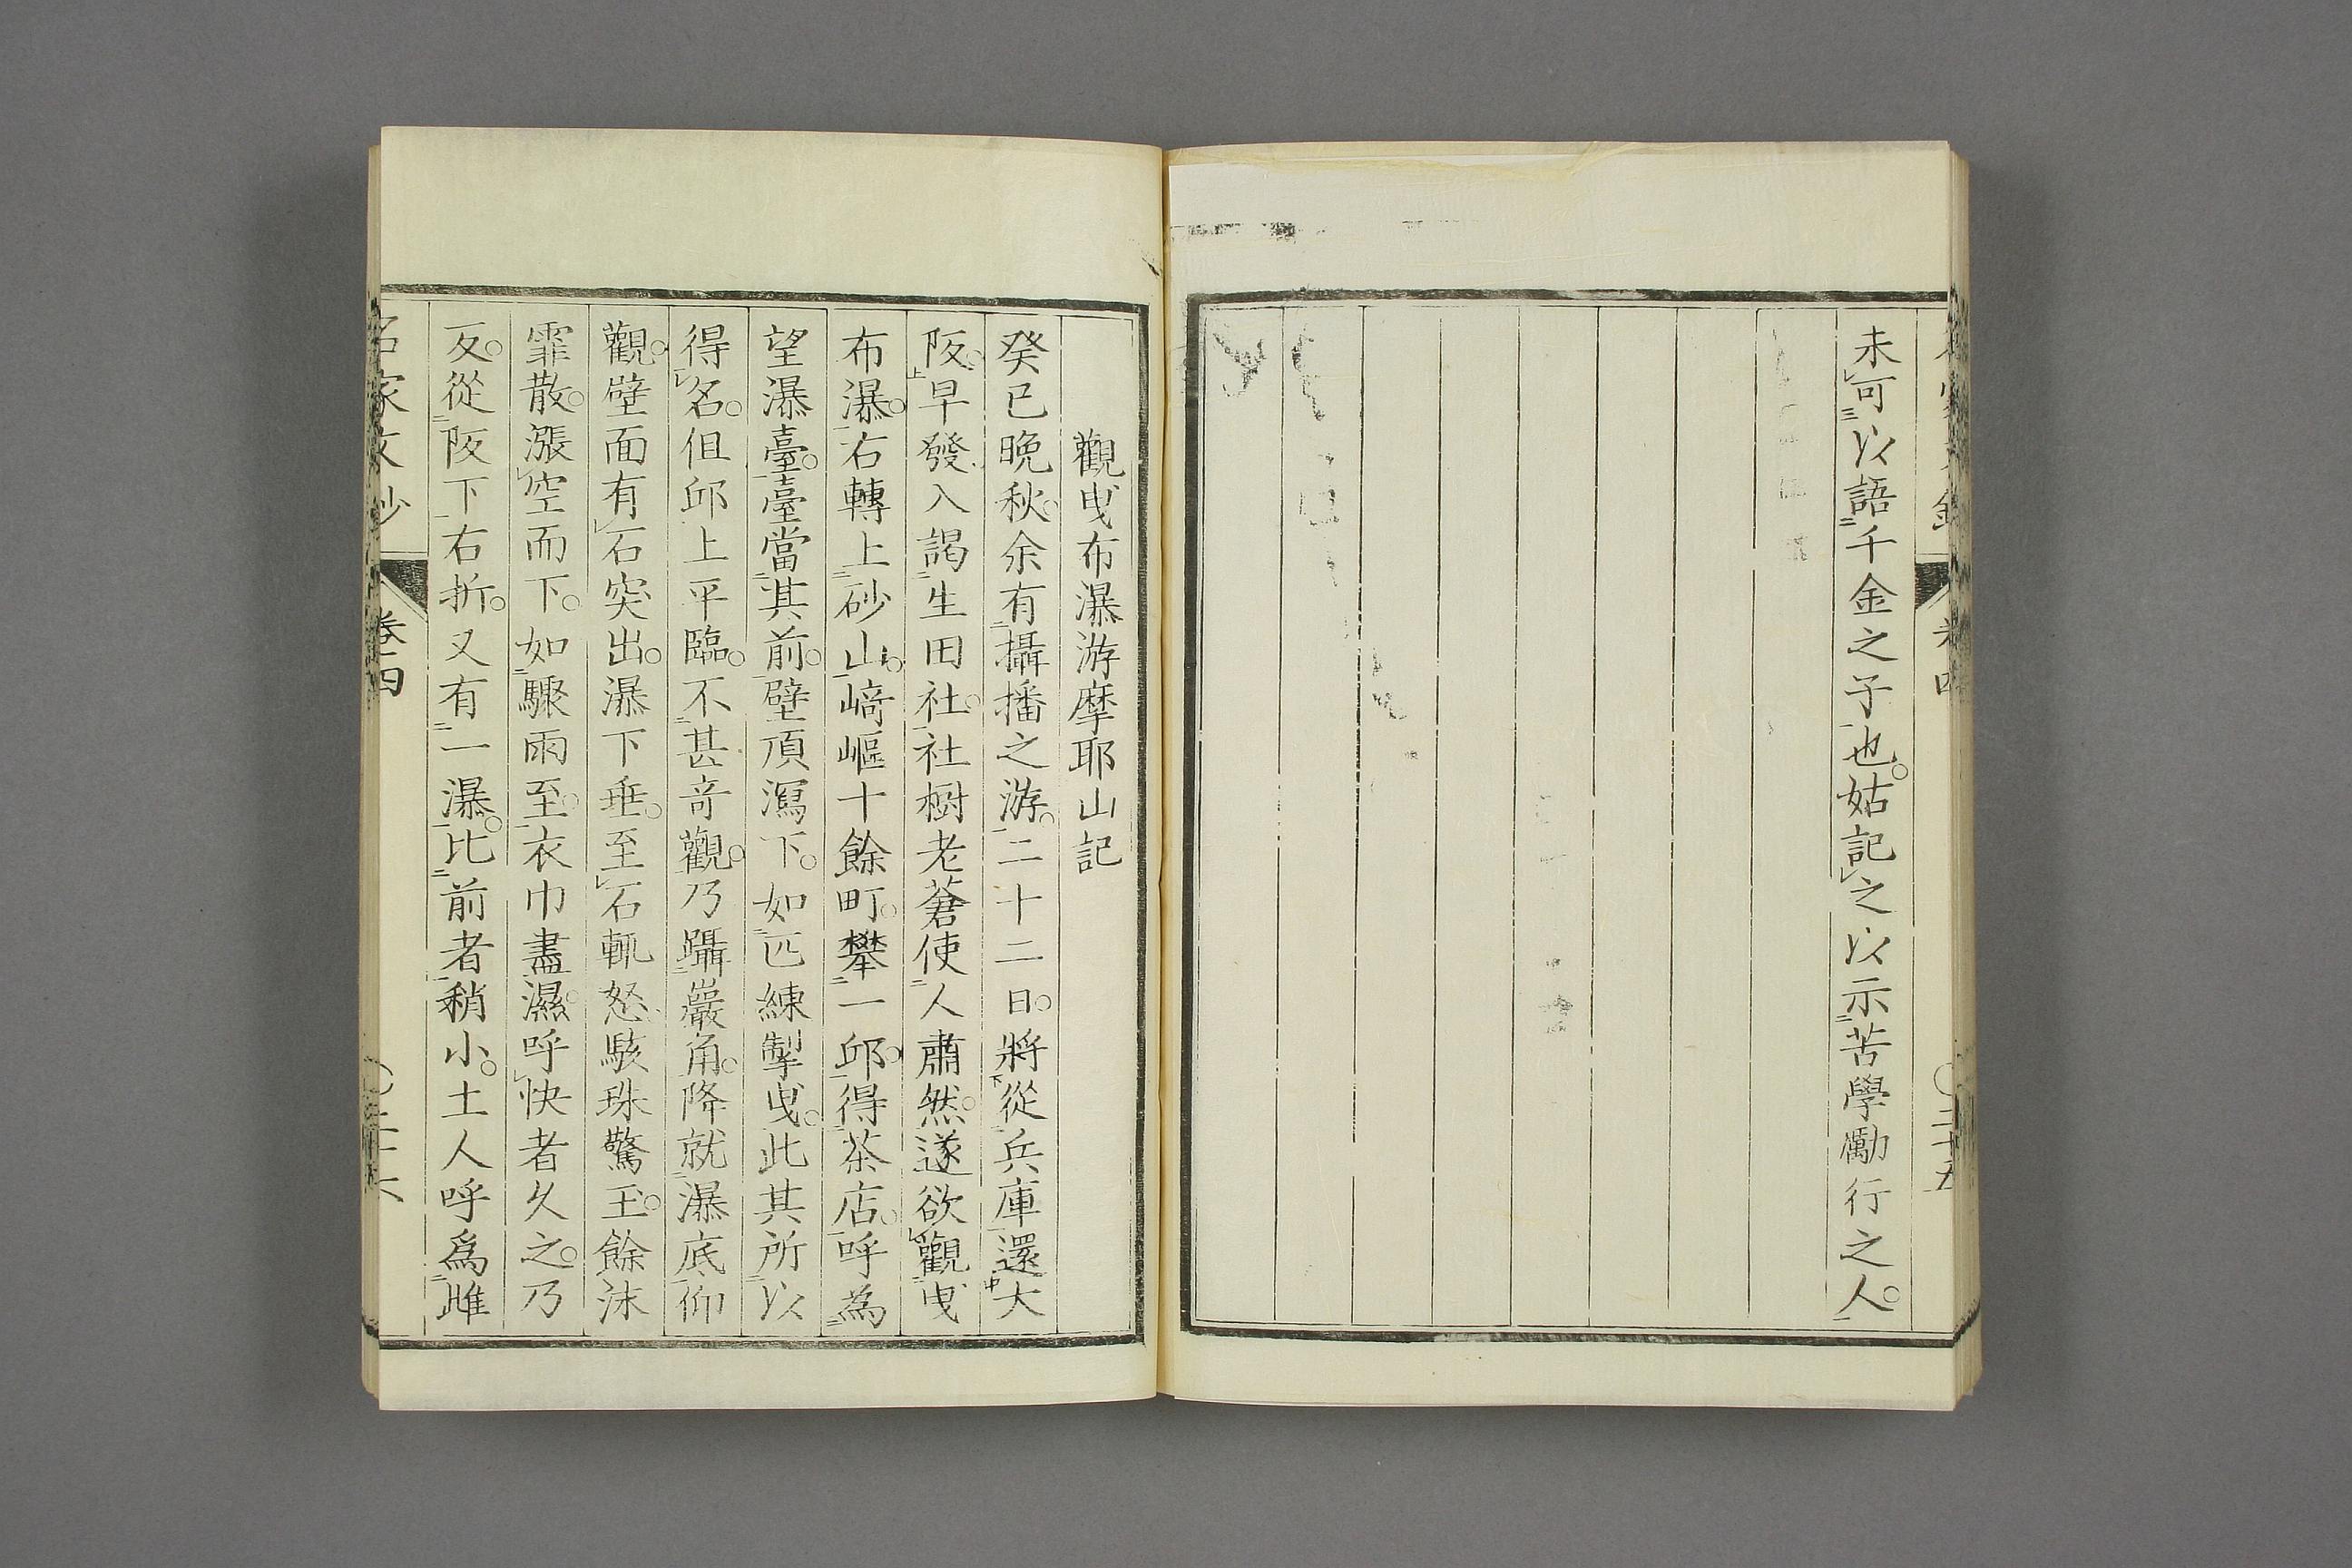 未可以語千金之子也。姑記之以示苦學勵行之人。
卷四
〇二十五
觀曵布瀑游摩耶山記
癸巳晚秋。余有攝播之游。二十二日。將從兵庫還大
阪。早發入謁生田社。社樹老蒼使人肅然。遂欲觀曵
布瀑。右轉上砂山。﨑嶇十餘町。攀一邱。得茶店。呼為
望瀑臺。臺當其前。壁頂瀉下。如匹練掣曵。此其所以
得名。但邱上平臨。不甚竒觀。乃躡巖角。降就瀑底。仰
觀。壁面有石突出。瀑下垂。至石輒怒。駭珠驚玉。餘沫
霏散。漲空而下。如驟雨至。衣巾盡濕。呼快者久之。乃
反。從阪下右折。又有一瀑。比前者稍小。土人呼爲雌
名家文抄
卷四
〇二十六